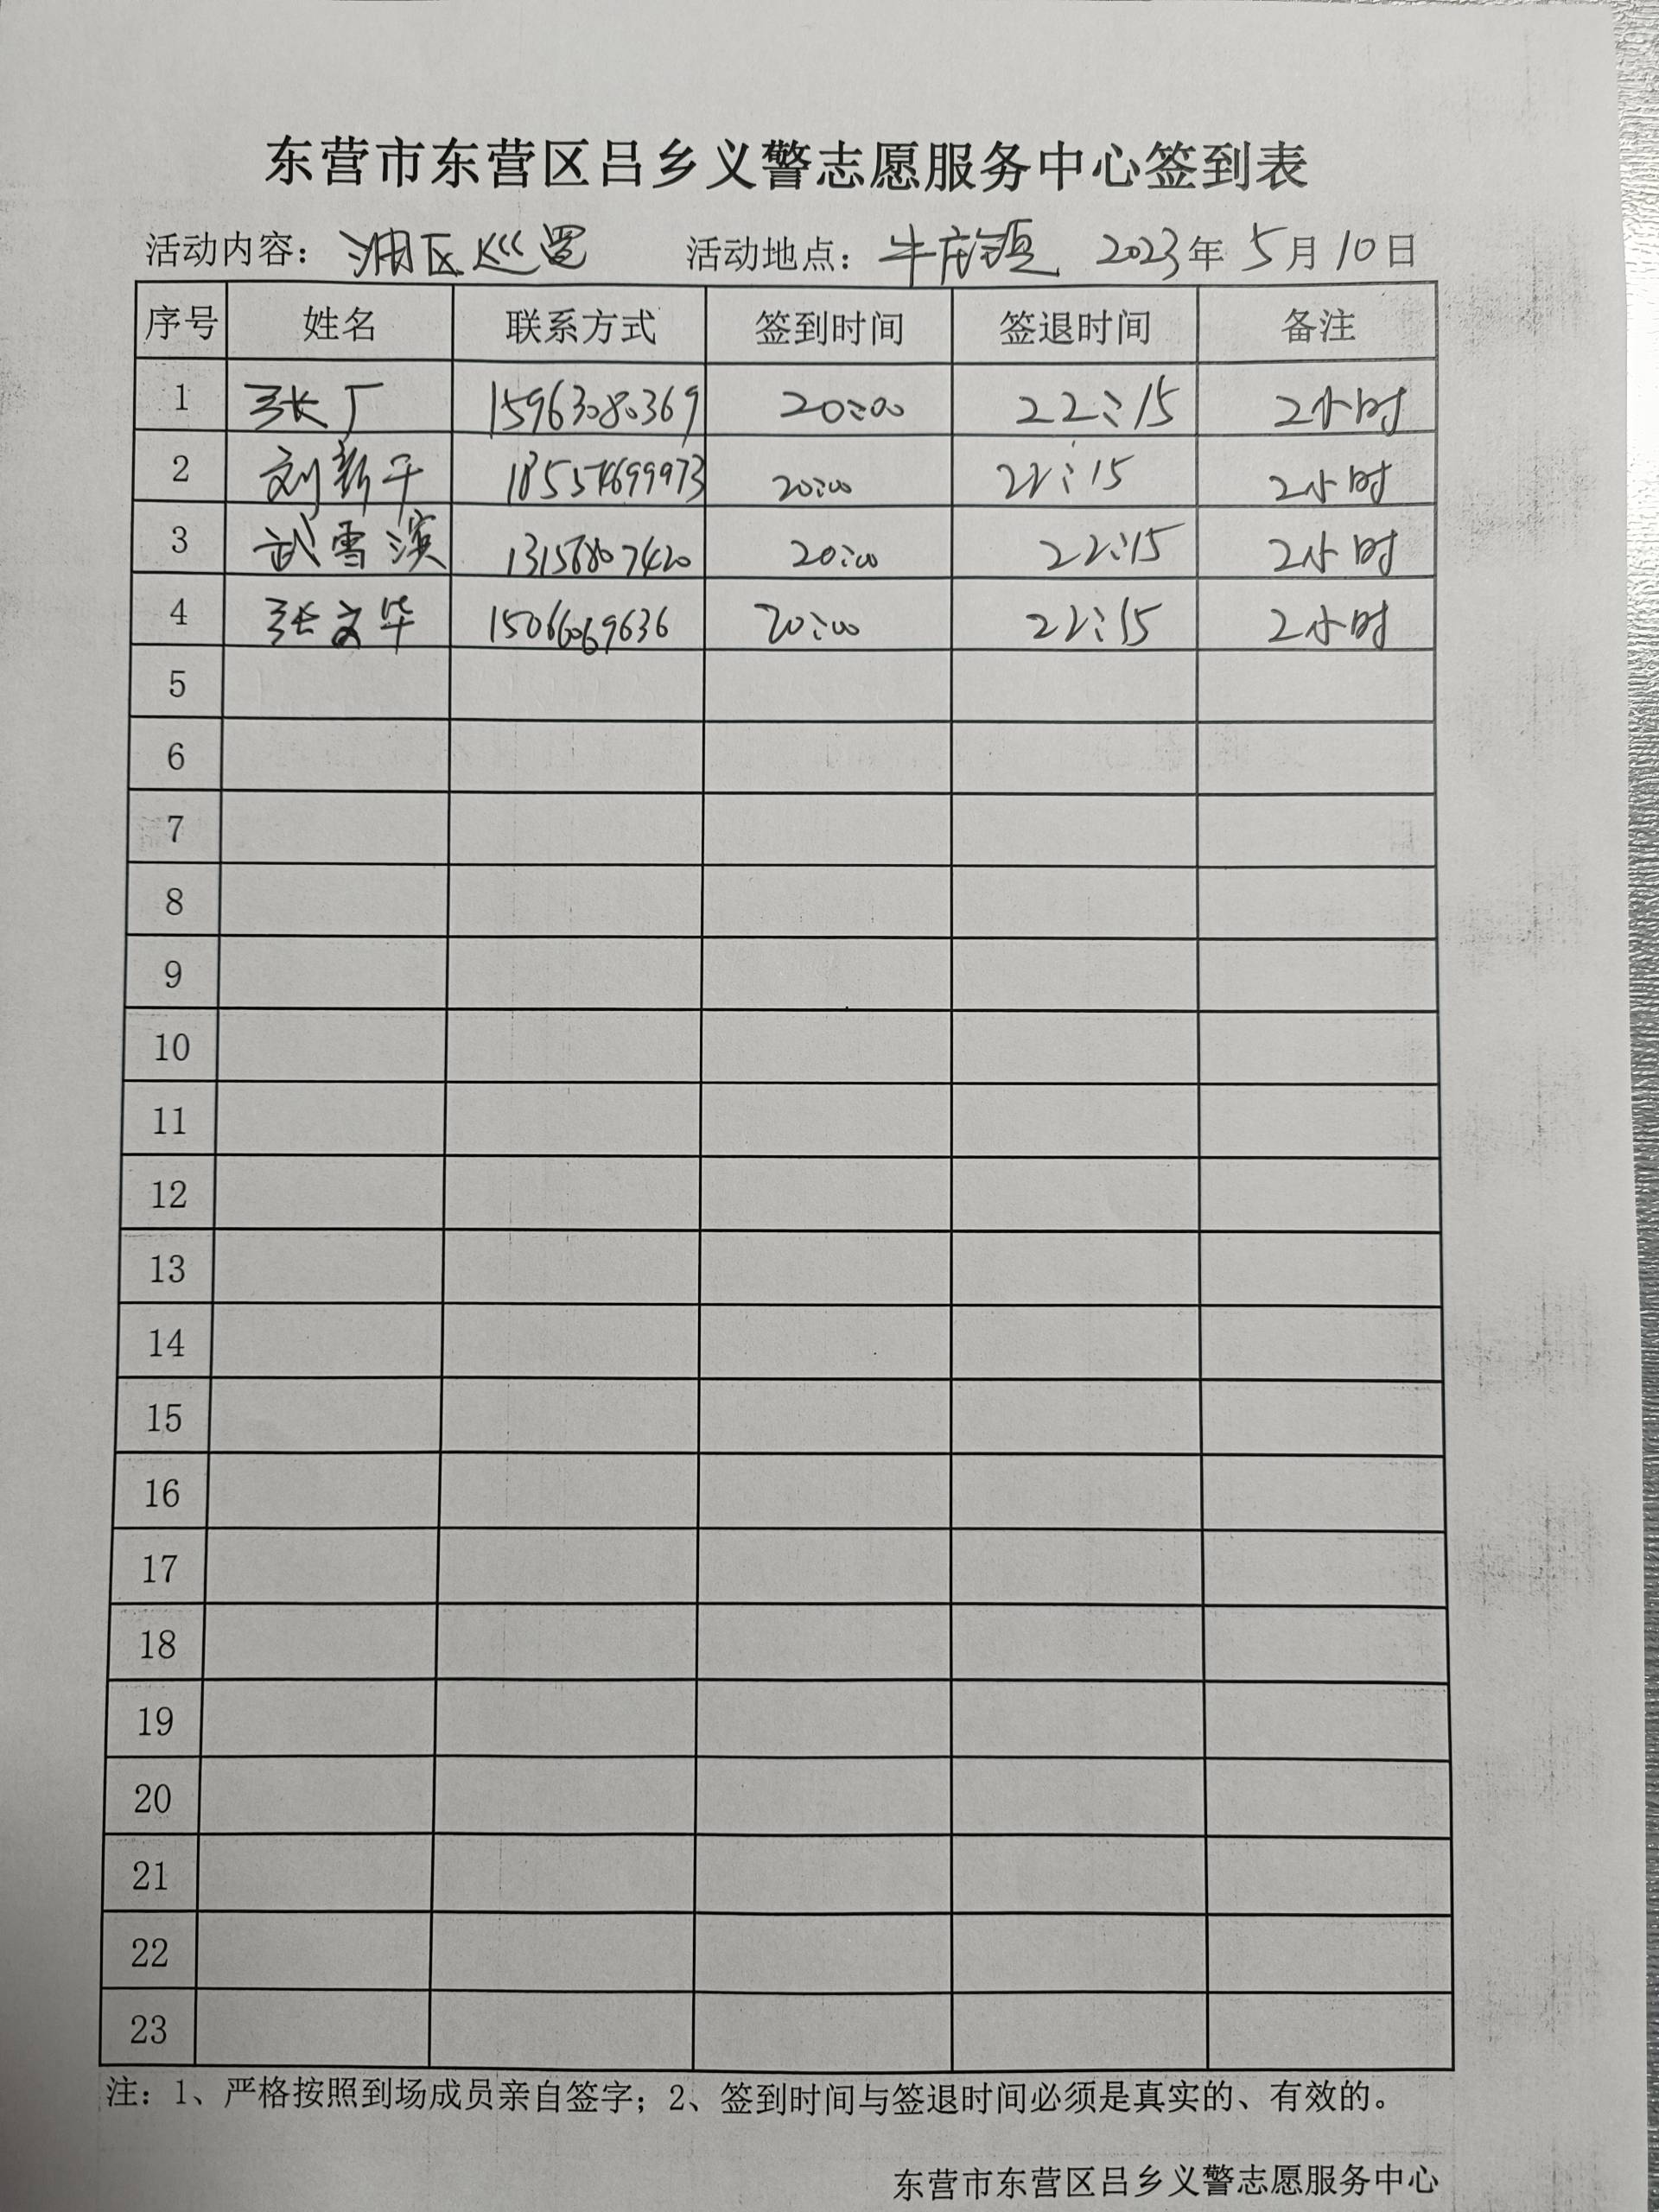 东营市东营区吕乡义警志愿服务中心签到表
活动内容：湖区巡逻 活动地点：牛庄镇 2023年5月10日
序号 姓名 联系方式 签到时间 签退时间 备注
1 张广 15963080369 20:00 22:15 2小时
2 刘新平 20:00 22:15 2小时
3 武雪滨 20:00 22:15 2小时
4 张文华 15066069636 20:00 22:15 2小时
5
6
7
8
9
10
11
12
13
14
15
16
17
18
19
20
21
22
23
注：1、严格按照到场成员亲自签字；2、签到时间与签退时间必须是真实的、有效的。
东营市东营区吕乡义警志愿服务中心